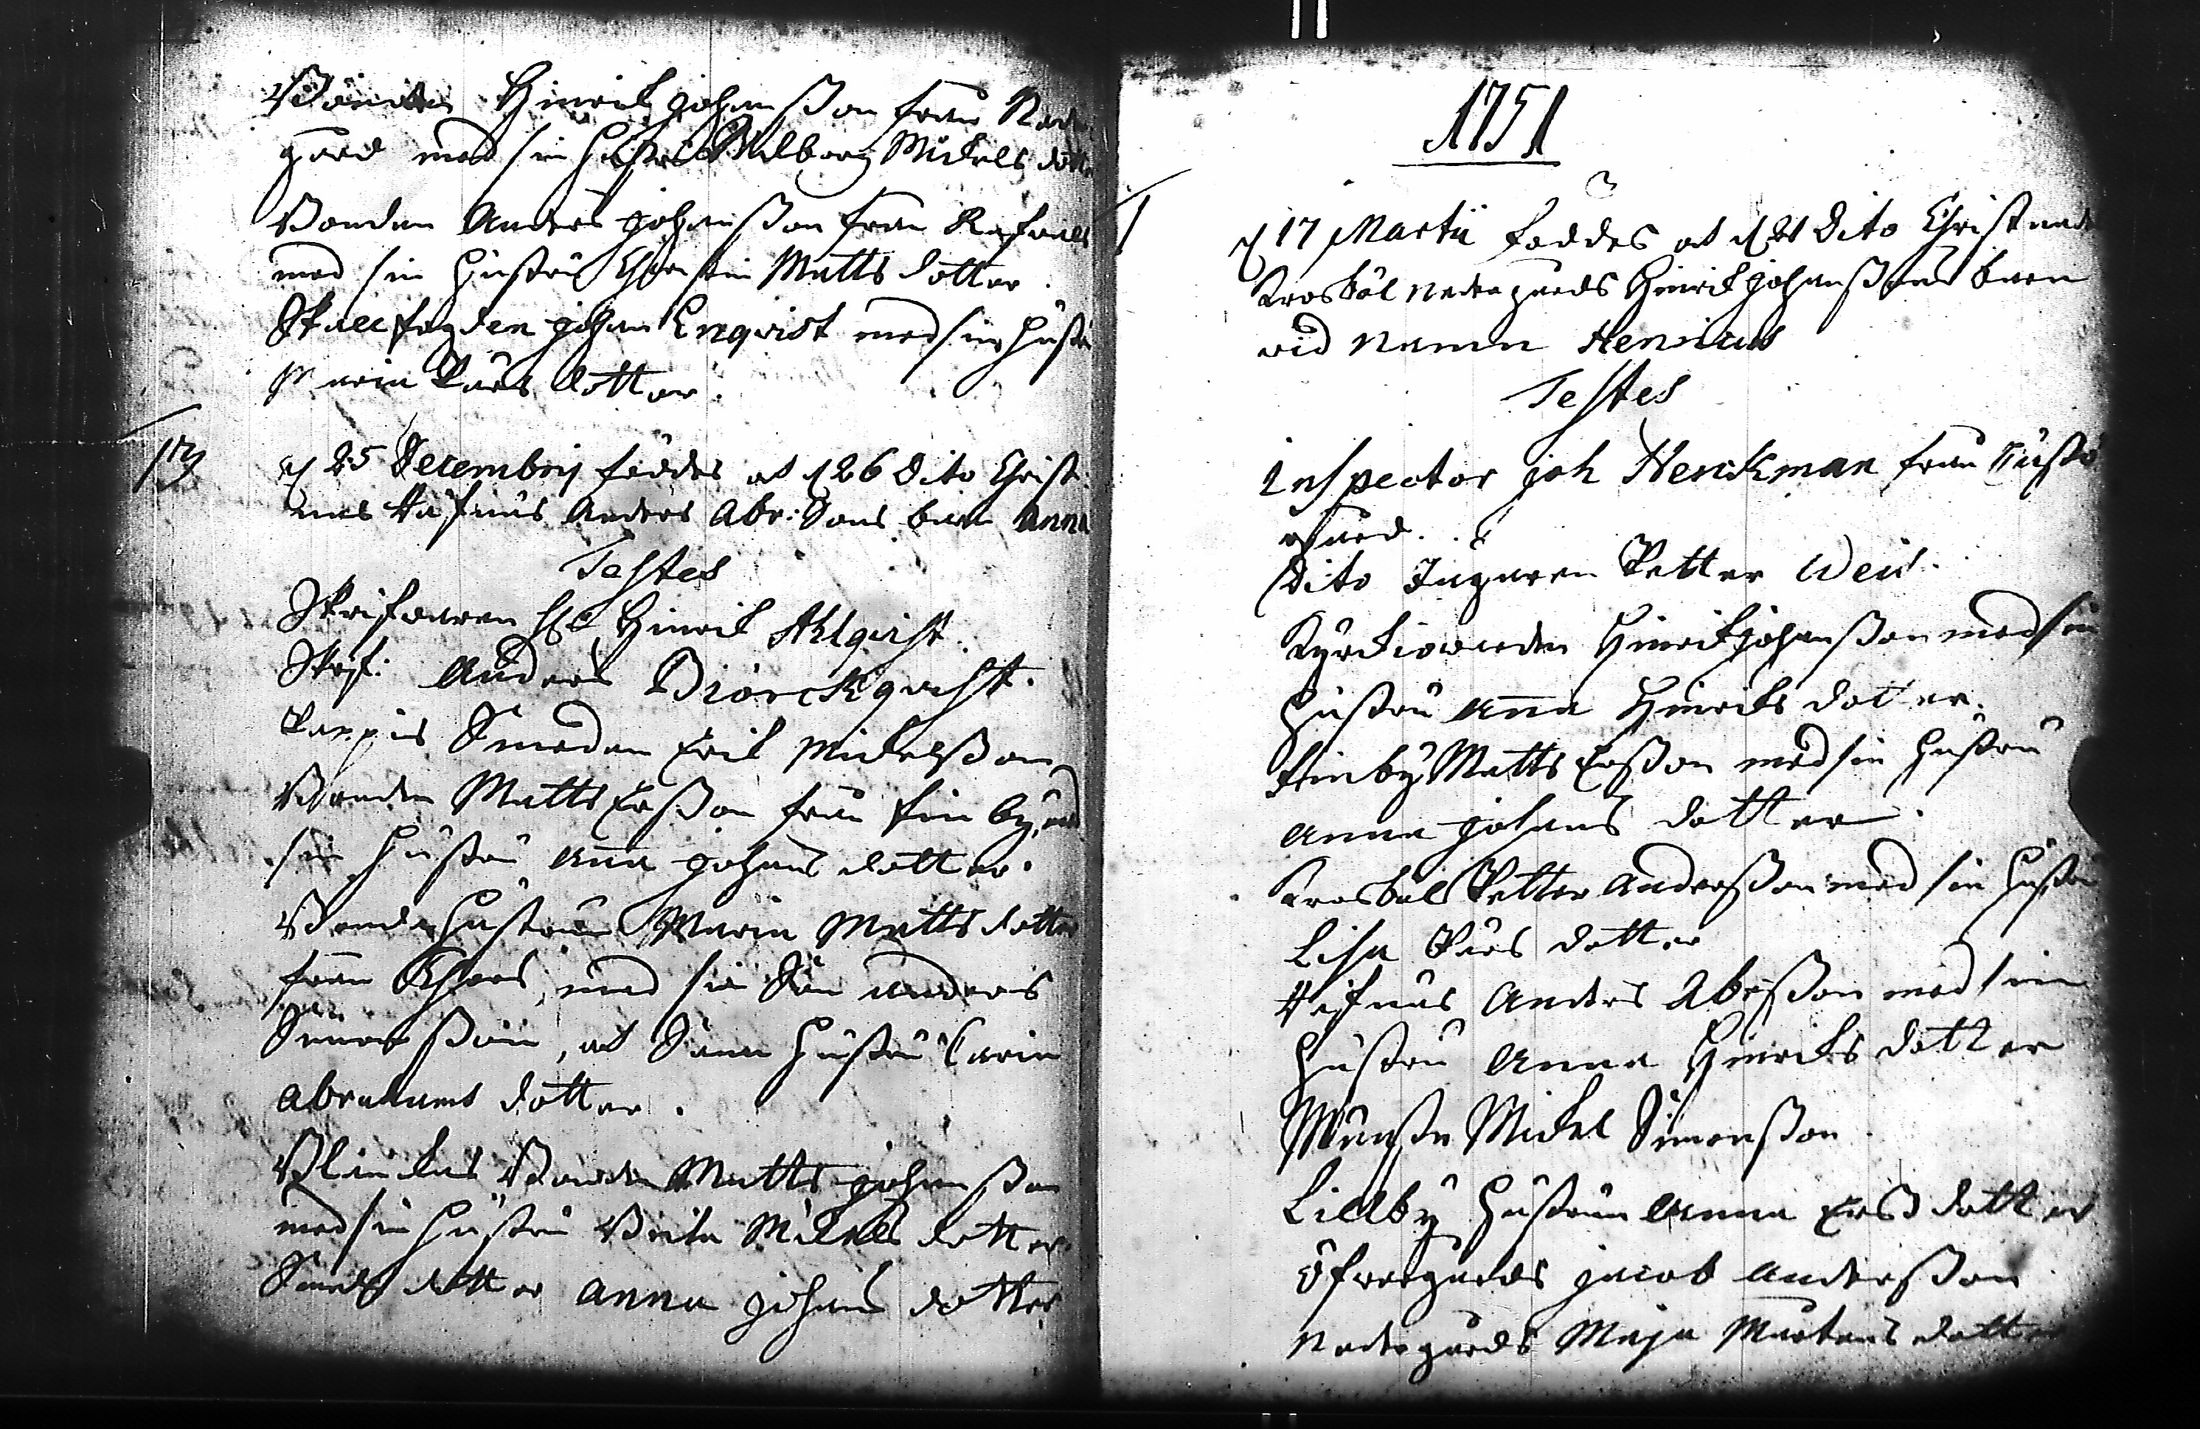 Bonden Hinrich Johanßon från Neder
gård med sin hustru Walborg Mickels dotter
Bonden Anders Johanßon från
med sin hustru Christin Matts dotter.
Stallfogden Johan Enqvist med sin hustru
Maria Pärs dotter.
13 d 25 Decembrij föddes ok d 26 Dito Christ-
nas Anders Abr: Sons barn Anna
Testes
Skrifwaren H: Hinrik Ahlqvist.
Skrif: Anders Biörckqvist.
Smeden Erik Mickelßon
Bonden Matts Erßon från Finby, med
sin hustru Anna Johans dotter.
Bonde hustrun Maria Matts dotter
från med sin Son Anders
Simonßon, ok Sonens hustru Carin
Abrahams dotter.
Bonden Matts Johanßon
med sin hustru Brita Mickels dotter.
dotter Anna Johans dotter
1751
1 d 17 Martii föddes ok d 21 Dito Christnades
Krosböl Nedergårds Hinrich Johanßons barn
wid namn Henricus
Testes
Inspector Joh Henckman från

Dito Jägaren Petter Weis.
Kyrckiowärden Hinrich Johanßon med sin
hustru Anna Hinrichs dotter.
Finby Matts Erßon med sin hustru
Anna Johans dotter.
Krosböl Petter Anderßon med sin hustru
Lisa Pärs dotter
Anders Abrßon med sin
hustru Anna Hinrichs dotter
Mickel Simonßon.
Lillby hustrun Anna Ers dotter
Öfwergårds Jacob Anderßon
Nedergårds Maja Mårtens dotter